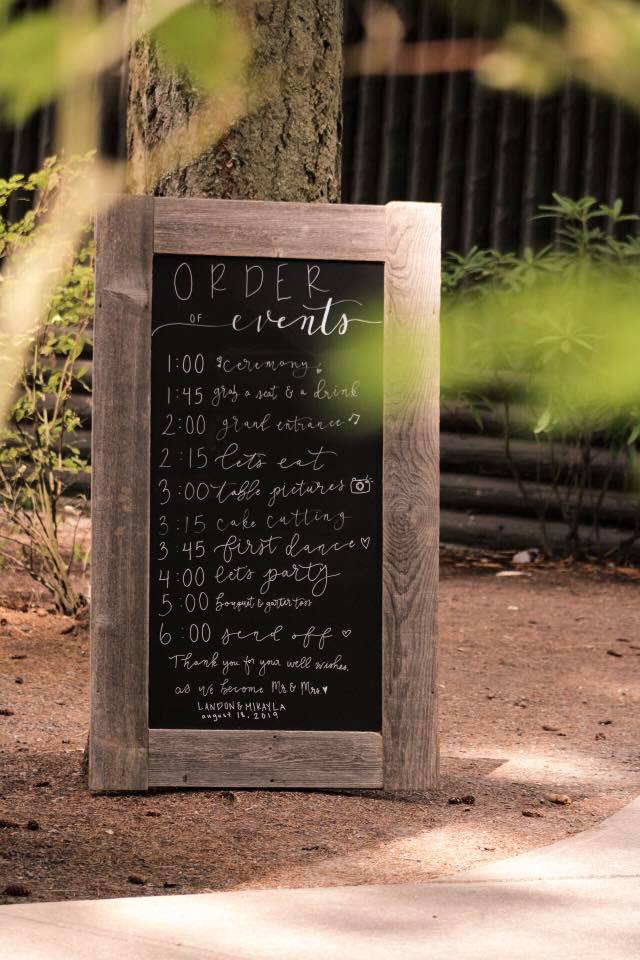 ORDER
OF events
1:00 ceremony
1:45 grab a seat & a drink
2:00 grand entrance
2:15 lets eat
3:00 table pictures
3:15 cake cutting
3:45 first dance
4:00 let's party
5:00 bouquet & garter toss
6:00 send off
Thank you for your well wishes,
as we become Mr & Mrs.
LANDON & MIKAYLA
august 18, 2019